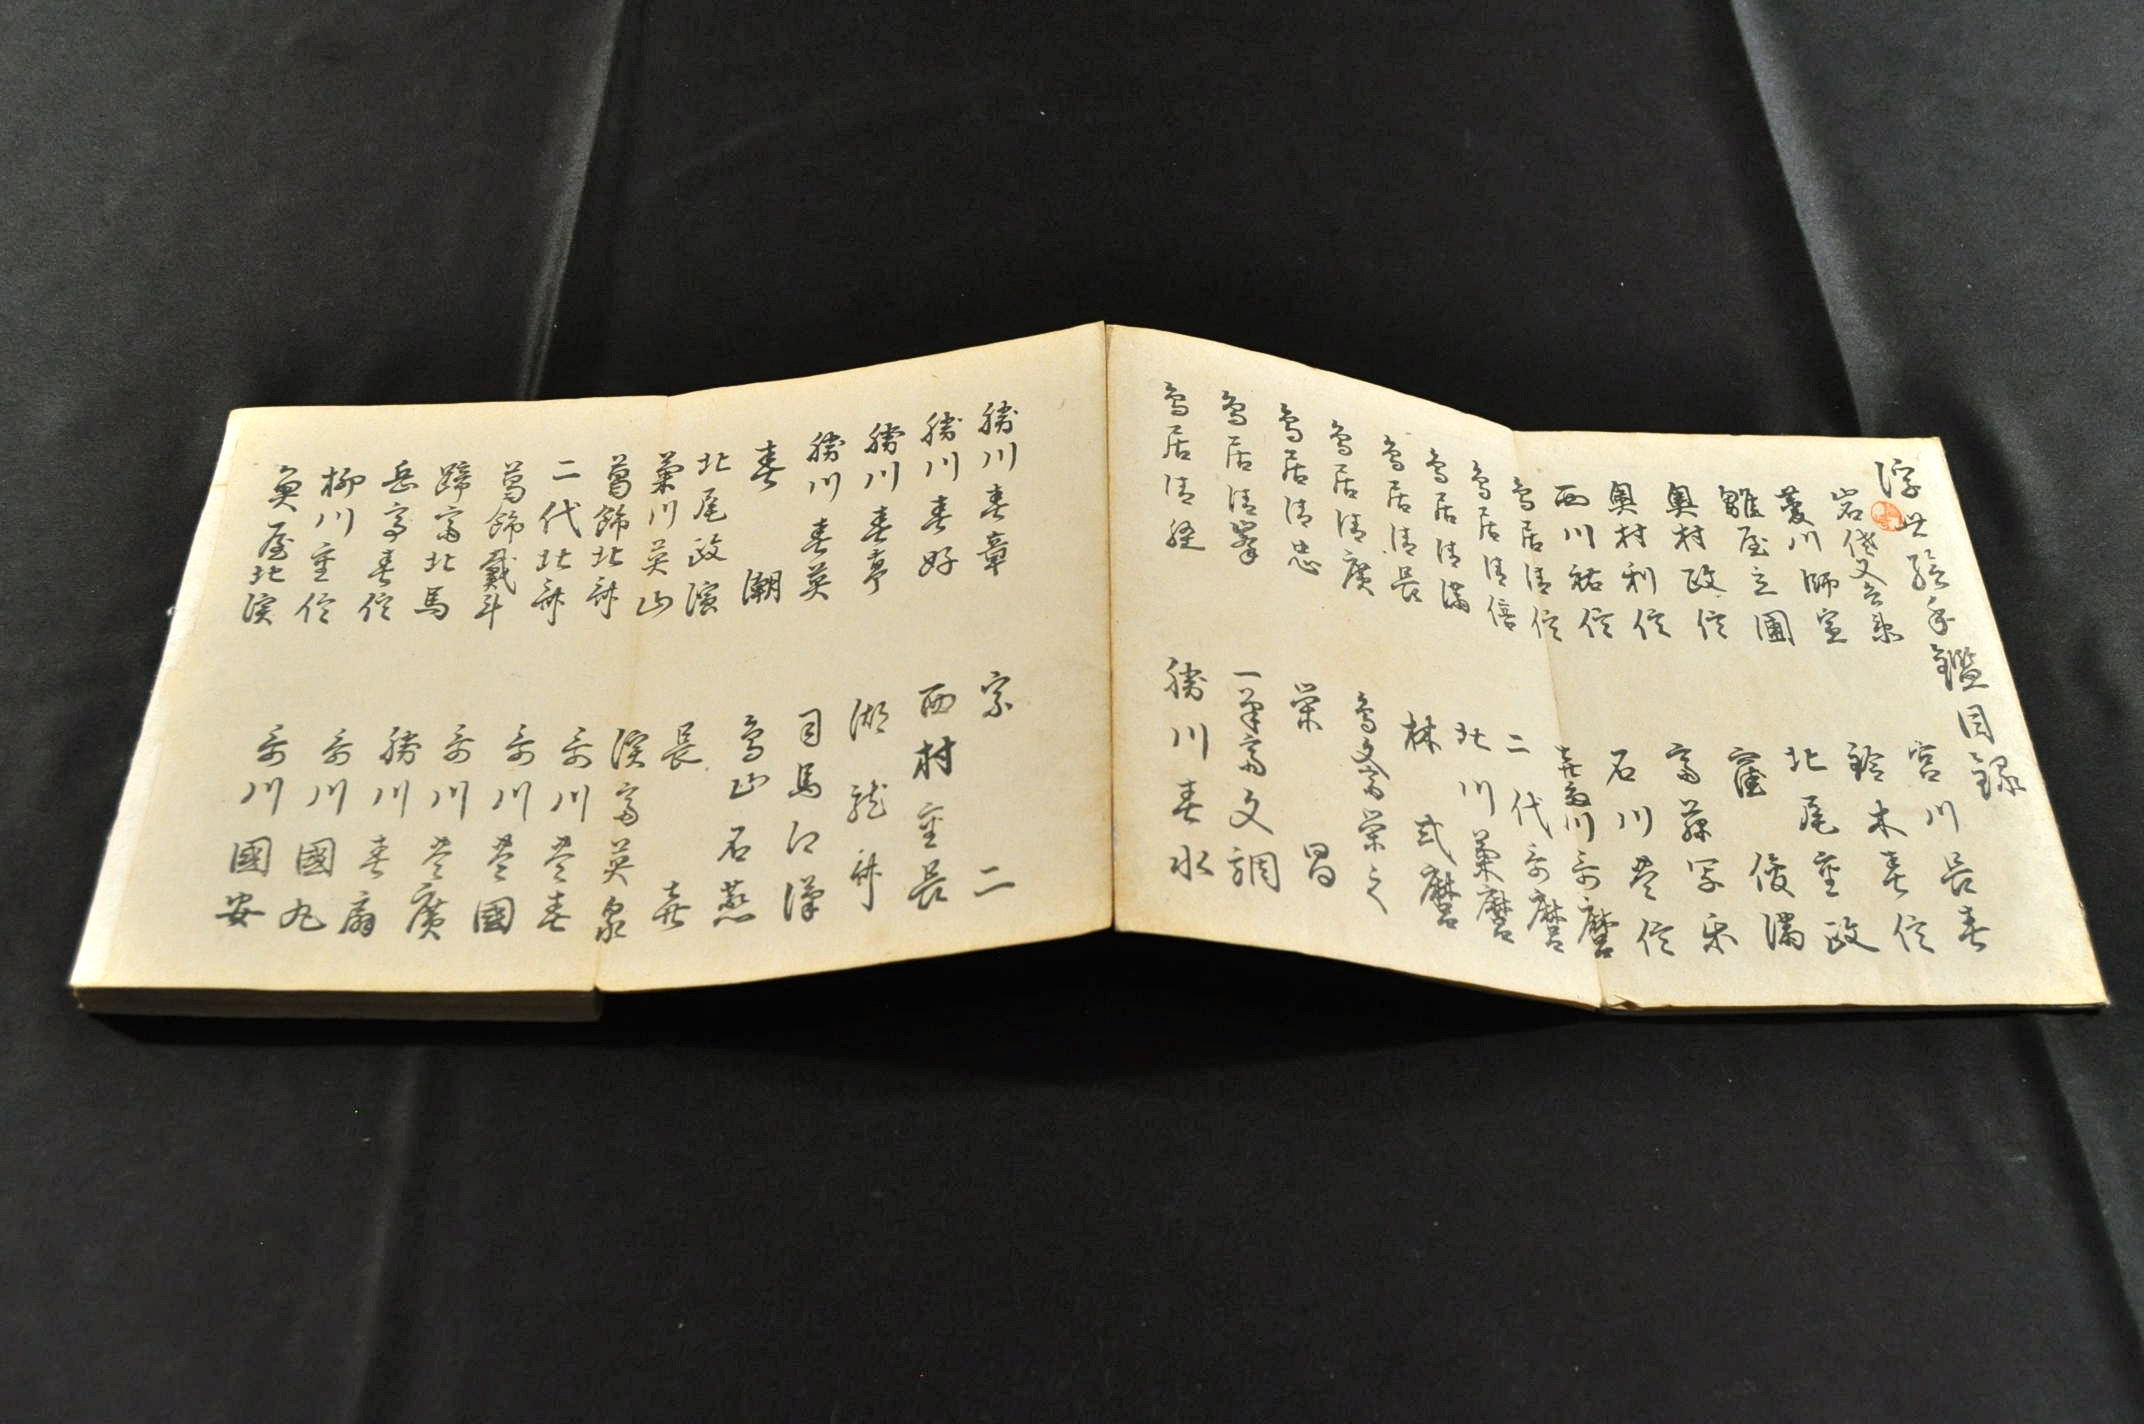 浮世絵手鑑目録
岩佐又兵衛
菱川師宣
雛屋立圃
奥村政信
奥村利信
西川祐信
鳥居清信
鳥居清倍
鳥居清満
鳥居清長
鳥居清廣
鳥居清忠
鳥居清峯
鳥居清経
宮川長春
鈴木春信
北尾重政
窪俊満
石川豊信
喜多川哥麿
二代哥麿
北川菊麿
林弐麿
鳥文斎栄之
栄昌
一筆斎文調
勝川春水
勝川春章
勝川春好
勝川春亭
勝川春英
春潮
北尾政演
菊川英山
葛飾北斎
二代北斎
葛飾戴斗
蹄斎北馬
岳亭春信
柳川重信
魚屋北渓
宗二
西村重長
湖龍斎
司馬江漢
鳥山石燕
長喜
渓斎英泉
哥川豊春
哥川豊國
哥川豊廣
勝川春扇
哥川國丸
哥川國安